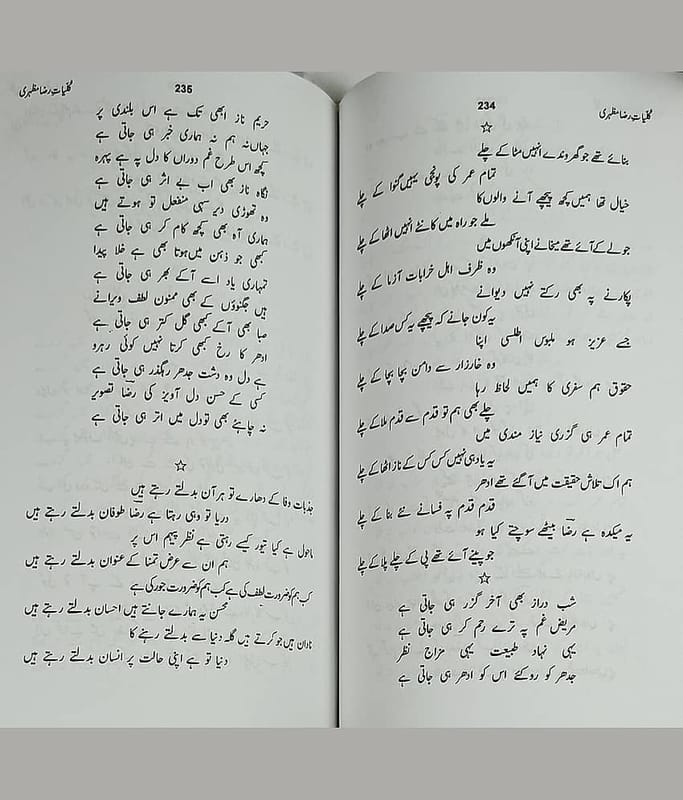 کلیاتِ رضا مظہری
234
☆
بنائے تھے جو گھروندے انہیں مٹا کے چلے
تمام عمر کی پونجی یہیں گنوا کے چلے
خیال تھا ہمیں کچھ پیچھے آنے والوں کا
ملے جو راہ میں کانٹے انہیں اٹھا کے چلے
جو لے کے آئے تھے میخانے اپنی آنکھوں میں
وہ ظرف اہل خرابات آزما کے چلے
پکارنے پہ بھی رکتے نہیں دیوانے
یہ کون جانے کہ پیچھے یہ کس صدا کے چلے
جسے عزیز ہو ملبوس اطلسی اپنا
وہ خارزار سے دامن بچا بچا کے چلے
حقوق ہم سفری کا ہمیں لحاظ رہا
چلے بھی ہم تو قدم سے قدم ملا کے چلے
تمام عمر ہی گزری نیاز مندی میں
یہ یاد ہی نہیں کس کس کے ناز اٹھا کے چلے
ہم اک تلاش حقیقت میں آ گئے تھے ادھر
قدم قدم پہ فسانے نئے بنا کے چلے
یہ میکدہ ہے رضاؔ بیٹھے سوچتے کیا ہو
جو پینے آئے تھے پی کے چلے پلا کے چلے
☆
شب دراز بھی آخر گزر ہی جاتی ہے
مریض غم پہ ترے رحم کر ہی جاتی ہے
یہی نہاد طبیعت یہی مزاج نظر
جدھر کو روکئے اس کو ادھر ہی جاتی ہے
کلیاتِ رضا مظہری
235
حریم ناز ابھی تک ہے اس بلندی پر
جہاں نہ ہم نہ ہماری خبر ہی جاتی ہے
کچھ اس طرح غم دوراں کا دل پہ ہے پہرہ
نگاہ ناز بھی اب بے اثر ہی جاتی ہے
وہ تھوڑی دیر سہی منفعل تو ہوتے ہیں
ہماری آہ بھی کچھ کام کر ہی جاتی ہے
کبھی جو ذہن میں ہوتا بھی ہے خلا پیدا
تمہاری یاد اسے آ کے بھر ہی جاتی ہے
ہیں جگنوؤں کے بھی ممنون لطف ویرانے
صبا بھی آ کے کبھی گل کتر ہی جاتی ہے
ادھر کا رخ کبھی کرتا نہیں کوئی رہرو
ہے دل وہ دشت جدھر رہگذر ہی جاتی ہے
کسی کے حسن دل آویز کی رضاؔ تصویر
نہ چاہئے بھی تو دل میں اتر ہی جاتی ہے
☆
جذبات وفا کے دھارے تو ہر آن بدلتے رہتے ہیں
دریا تو وہی رہتا ہے رضاؔ طوفان بدلتے رہتے ہیں
ماحول ہے کیا تیور کیسے رہتی ہے نظر پیہم اس پر
ہم ان سے عرض تمنا کے عنوان بدلتے رہتے ہیں
کب ہم کو ضرورت لطف کی ہے کب ہم کو ضرورت جور کی ہے
محسن یہ ہمارے جانتے ہیں احسان بدلتے رہتے ہیں
نادان ہیں جو کرتے ہیں گلہ دنیا سے بدلتے رہنے کا
دنیا تو ہے اپنی حالت پر انسان بدلتے رہتے ہیں